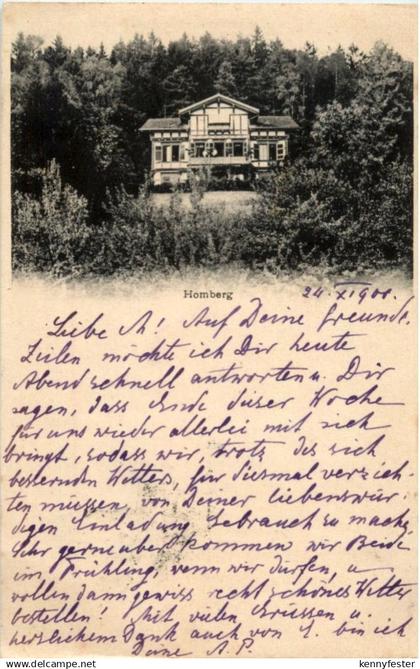 Homberg
24. XI 1900.
Liebe A! Auf Deine freundl.
Zeilen möchte ich Dir heute
Abend schnell antworten u. Dir
sagen, dass Ende dieser Woche
für uns wieder allerlei mit sich
bringt, sodass wir, trotz des sich
bessernden Wetters, für diesmal verzich-
ten müssen, von Deiner liebenswür-
digen Einladung Gebrauch zu mache
Sehr gerne aber kommen wir Beide
im Frühling, wenn wir dürfen, u.
wollen dann gewiss recht schönes Wetter
bestellen! Mit vielen Grüssen u.
herzlichem Dank auch von S. bin ich
Deine A. P.
kennyfester